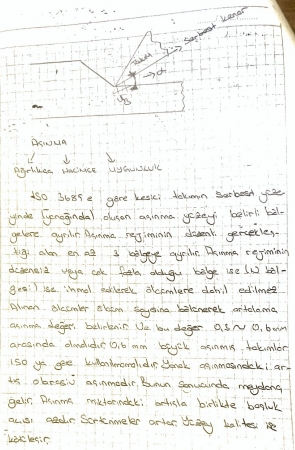 Serbest kenar
AŞINMA
Ağırlıkça HACİMCE UYGUNLUK
ISO 3685 e göre kesici takımın Serbest yüze
yinde (yanağında) oluşan aşınma yüzeyi belirli böl-
gelere ayrılır. Aşınma rejiminin düzenli gerçekleş-
tiği alan en az 3 bölgeye ayrılır. Aşınma rejiminin
düzensiz veya çok fazla olduğu bölge ise (N böl-
gesi) ise ihmal edilerek ölçümlere dahil edilmez
Alınan ölçümler ölçüm sayısına bölünerek ortalama
aşınma değeri belirlenir. Ve bu değer 0,3 ~ 0,6 mm
arasında olmalıdır. 0,6 mm büyük aşınmış takımlar
ISO ya göre kullanılmamalıdır. Yanak aşınmasındaki ar-
tış abrasiv aşınmadır. Bunun sonucunda meydana
gelir. Aşınma miktarındaki artışla birlikte boşluk
açısı azalır. Sürtünmeler artar. Yüzey kalitesi ise
kötüleşir.